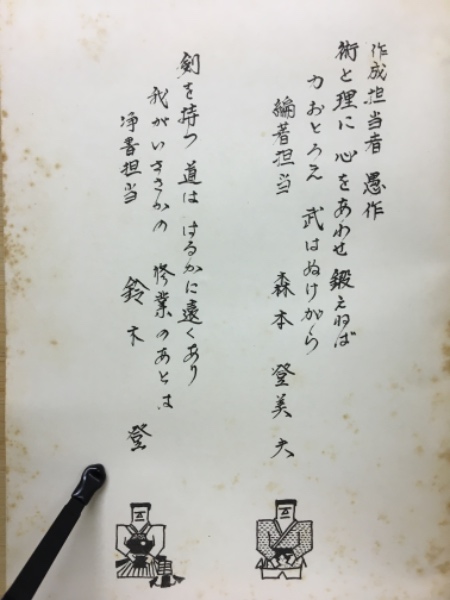 作成担当者 愚作
術と理に 心をあわせ 鍛えねば
力おとろえ 武はぬけがら
編著担当 森本 登美夫
剣を持つ 道は はるかに遠くあり
我がいささかの 修業のあとは
浄書担当 鈴木 登